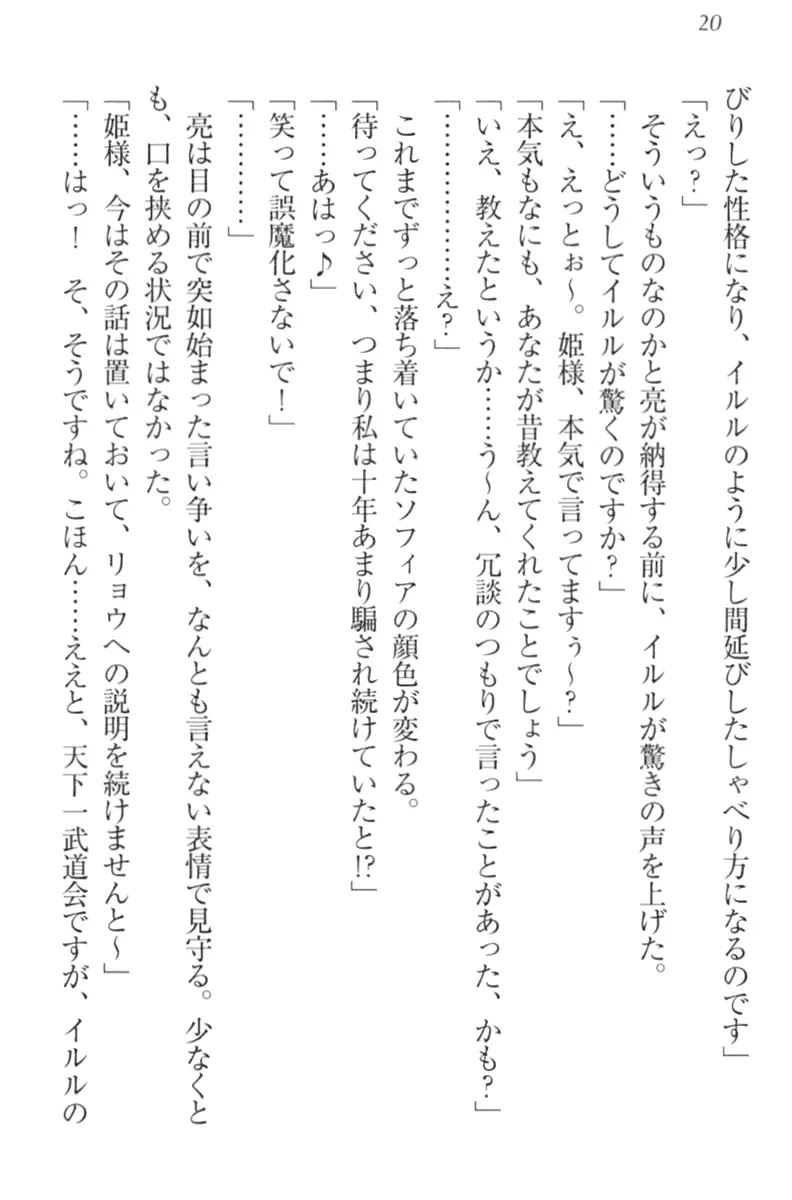 20
びりした性格になり、イルルのように少し間延びしたしゃべり方になるのです」
「えっ？」
そういうものなのかと亮が納得する前に、イルルが驚きの声を上げた。
「……どうしてイルルが驚くのですか？」
「え、えっとぉ～。姫様、本気で言ってますぅ～？」
「本気もなにも、あなたが昔教えてくれたことでしょう」
「いえ、教えたというか……う～ん、冗談のつもりで言ったことがあった、かも？」
「………………え？」
これまでずっと落ち着いていたソフィアの顔色が変わる。
「待ってください、つまり私は十年あまり騙され続けていたと!?」
「……あはっ♪」
「笑って誤魔化さないで！」
「…………」
亮は目の前で突如始まった言い争いを、なんとも言えない表情で見守る。少なくと
も、口を挟める状況ではなかった。
「姫様、今はその話は置いておいて、リョウへの説明を続けませんと～」
「……はっ！　そ、そうですね。こほん……ええと、天下一武道会ですが、イルルの